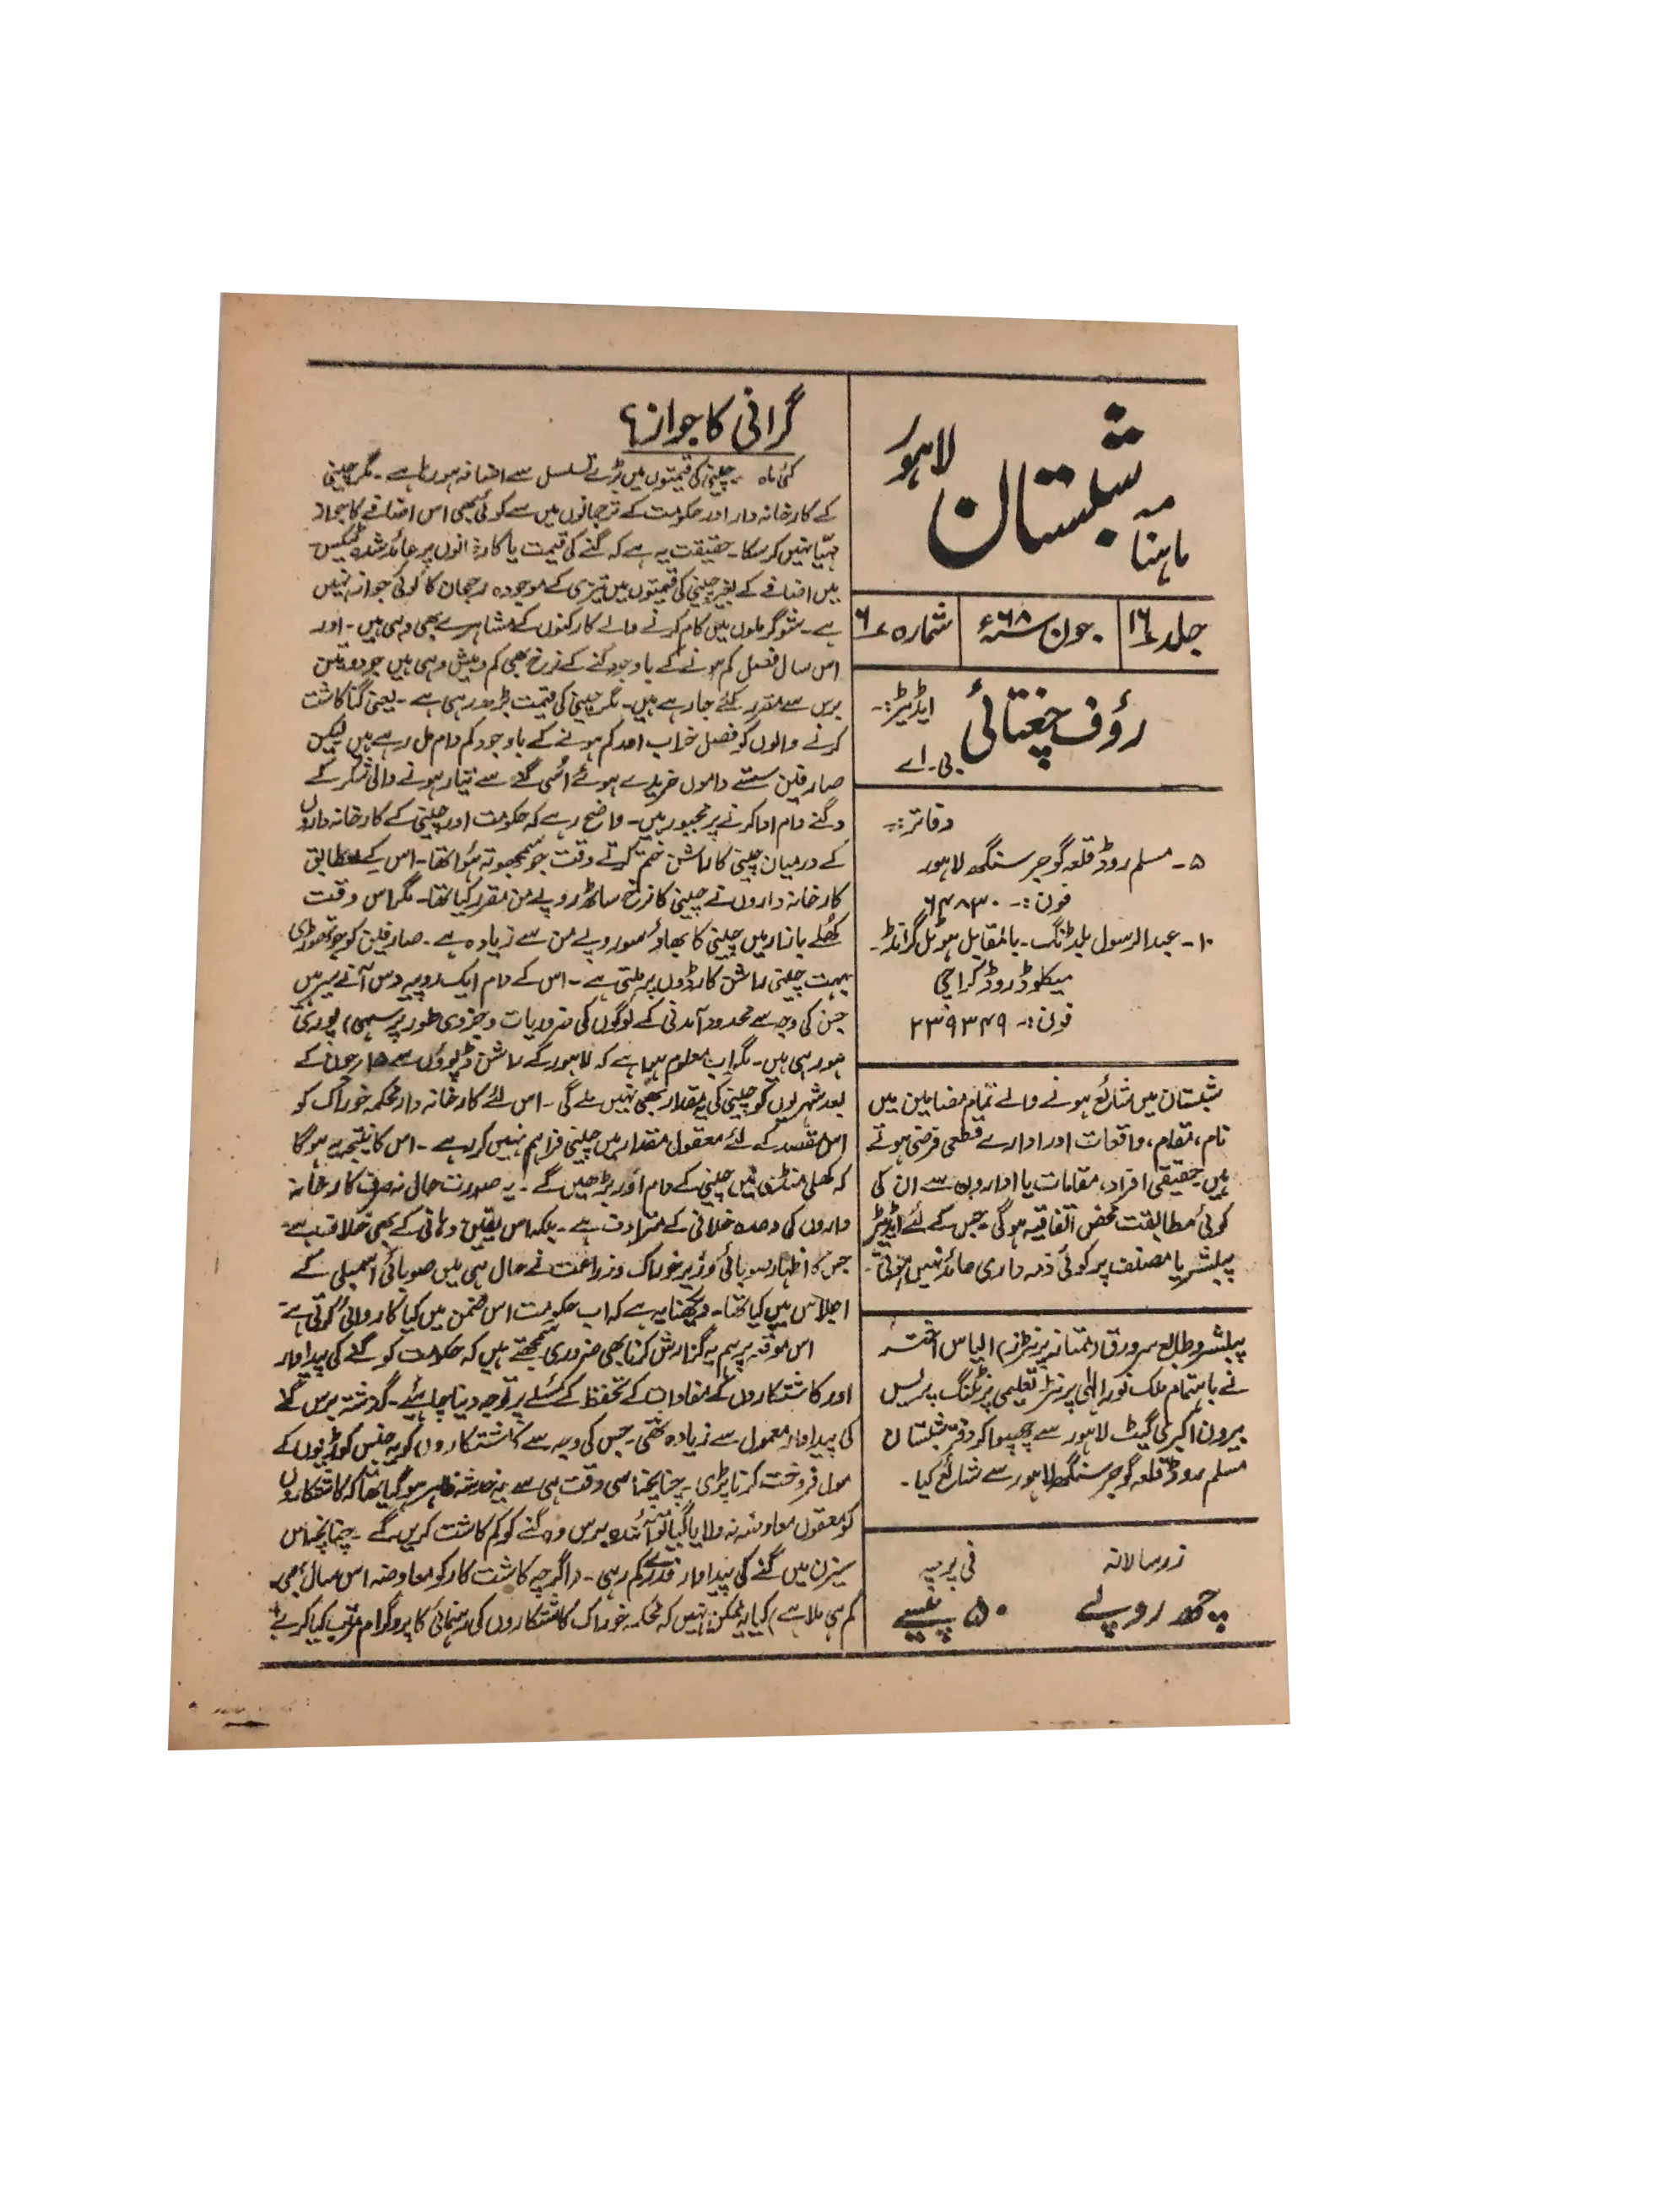 ماہنامہ شبستان لاہور
جلد ۱۶ جون سنہ ۶۸ء شمارہ ۶
ایڈیٹر:۔
رؤف چغتائی
بی۔اے
دفاتر:۔
۵۔ مسلم روڈ قلعہ گوجر سنگھ لاہور
فون:۔ ۶۴۸۳۰
۱۰۔ عبدالرسول بلڈنگ۔ بالمقابل ہوٹل گرانڈ۔
میکلوڈ روڈ کراچی
فون:۔ ۲۳۹۳۴۹
شبستان میں شائع ہونے والے تمام مضامین میں
نام، مقام، واقعات اور ادارے قطعی فرضی ہوتے
ہیں حقیقی افراد، مقامات یا اداروں سے ان کی
کوئی مطابقت محض اتفاقیہ ہوگی جس کے لئے ایڈیٹر
پبلشر یا مصنف پر کوئی ذمہ داری عائد نہیں ہوتی۔
پبلشر و طابع سرورق (ممتاز پرنٹرز) الیاس اختر
نے باہتمام ملک نور الٰہی پرنٹر تعلیمی پرنٹنگ پریس
بیرون اکبری گیٹ لاہور سے چھپوا کر دفتر شبستان
مسلم روڈ قلعہ گوجر سنگھ لاہور سے شائع کیا۔
زر سالانہ فی پرچہ
چھ روپے ۵۰ پیسے
گرانی کا جواز؟
کئی ماہ چینی کی قیمتوں میں بڑے تسلسل سے اضافہ ہو رہا ہے۔ مگر چینی
کے کارخانہ دار اور حکومت کے ترجمانوں میں سے کوئی بھی اس اضافے کا جواز
مہیّا نہیں کر سکا۔ حقیقت یہ ہے کہ گنے کی قیمت یا کارخانوں پر عائد شدہ ٹیکس
میں اضافے کے بغیر چینی کی قیمتوں میں تیزی کے موجودہ رجحان کا کوئی جواز نہیں
ہے۔ شوگر ملوں میں کام کرنے والے کارکنوں کے مشاہرے بھی وہی ہیں۔ اور
اس سال فصل کم ہونے کے باوجود گنے کے نرخ بھی کم و بیش وہی ہیں جو دو تین
برس سے مقرر کئے جا رہے ہیں۔ مگر چینی کی قیمت بڑھ رہی ہے۔ یعنی گنا کاشت
کرنے والوں کو فصل خراب اور کم ہونے کے باوجود کم دام مل رہے ہیں لیکن
صارفین سستے داموں خریدے ہوئے اُسی گنے سے تیار ہونے والی شکر کے
دگنے دام ادا کرنے پر مجبور ہیں۔ واضح رہے کہ حکومت اور چینی کے کارخانہ داروں
کے درمیان چینی کا راشن ختم کرتے وقت جو سمجھوتہ ہوُا تھا۔ اس کے مطابق
کارخانہ داروں نے چینی کا نرخ ساٹھ روپے من مقرر کیا تھا۔ مگر اس وقت
کھُلے بازار میں چینی کا بھاؤ سو روپے من سے زیادہ ہے۔ صارفین کو جو تھوڑی
بہت چینی راشن کارڈوں پر ملتی ہے۔ اس کے دام ایک روپیہ دس آنے سیر ہیں
جن کی وجہ سے محدود آمدنی کے لوگوں کی ضروریات (جزوی طور پر سہی) پوری
ہو رہی ہیں۔ مگر اب معلوم ہوا ہے کہ لاہور کے راشن ڈپوؤں سے ۱۵ جون کے
بعد شہریوں کو چینی کی یہ مقدار بھی نہیں ملے گی۔ اس لئے کارخانہ دار محکمہ خوراک کو
اس مقصد کے لئے معقول مقدار میں چینی فراہم نہیں کر رہے۔ اس کا نتیجہ یہ ہوگا
کہ کھلی منڈی میں چینی کے دام اور بڑھیں گے۔ یہ صورت حال نہ صرف کارخانہ
داروں کی وعدہ خلافی کے مترادف ہے۔ بلکہ اس یقین دہانی کے بھی خلاف ہے
جس کا اظہار صوبائی وزیر خوراک و زراعت نے حال ہی میں صوبائی اسمبلی کے
اجلاس میں کیا تھا۔ دیکھنا یہ ہے کہ اب حکومت اس ضمن میں کیا کاروائی کرتی ہے
اس موقعہ پر ہم یہ گزارش کرنا بھی ضروری سمجھتے ہیں کہ حکومت کو گنے کی پیداوار
اور کاشتکاروں کے مفادات کے تحفظ کے مسئلے پر توجہ دینا چاہیئے۔ گذشتہ برس گنے
کی پیداوار معمول سے زیادہ تھی۔ جس کی وجہ سے کاشتکاروں کو یہ جنس کوڑیوں کے
مول فروخت کرنا پڑی۔ چنانچہ اسی وقت ہی سے یہ خدشہ ظاہر ہو گیا تھا کہ کاشتکاروں
کو معقول معاوضہ نہ دلایا گیا تو آئندہ برس وہ گنے کو کم کاشت کریں گے۔ چنانچہ اس
سیزن میں گنے کی پیداوار قدرے کم رہی۔ (اگرچہ کاشت کار کو معاوضہ اس سال بھی
کم ہی ملا ہے) کیا یہ ممکن نہیں کہ محکمہ خوراک کاشتکاروں کی رہنمائی کا پروگرام مرتب کیا کرے